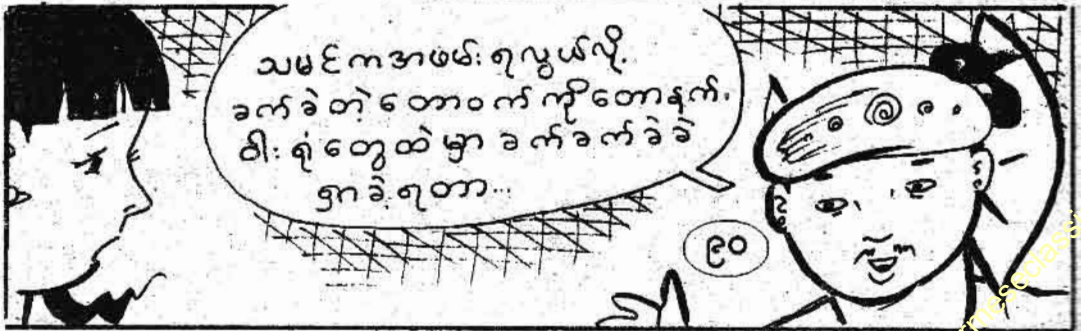 သမင်ကအဖမ်းရလွယ်လို့
ခက်ခဲတဲ့တောဝက်ကိုတောနက်၊
ဝါးရုံတွေထဲမှာခက်ခက်ခဲခဲ
ရှာခဲ့ရတာ...
၉၀